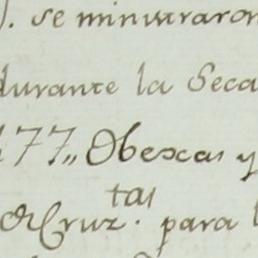 ). se ministraron
durante la Seca
477,, Obexas y
tas
de Cruz . para l